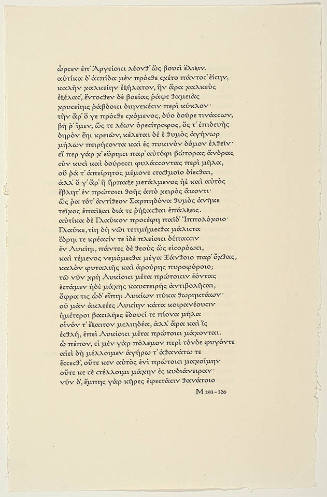 ὦρσεν ἐπ' Ἀργείοισι λέονθ' ὣς βουσὶν ἕλιξιν.
αὐτίκα δ' ἀσπίδα μὲν πρόσθε σχέτο πάντοσ' ἐΐσην,
καλὴν χαλκείην ἐξήλατον, ἣν ἄρα χαλκεὺς
ἤλασεν, ἔντοσθεν δὲ βοείας ῥάψε θαμειὰς
χρυσείῃς ῥάβδοισι διηνεκέσιν περὶ κύκλον·
τὴν ἄρ' ὅ γε πρόσθε σχόμενος, δύο δοῦρε τινάσσων,
βῆ ῥ' ἴμεν, ὥς τε λέων ὀρεσίτροφος, ὅς τ' ἐπιδευὴς
δηρὸν ἔῃ κρειῶν, κέλεται δέ ἑ θυμὸς ἀγήνωρ
μήλων πειρήσοντα καὶ ἐς πυκινὸν δόμον ἐλθεῖν·
εἴ περ γάρ χ' εὕρῃσι παρ' αὐτόφι βώτορας ἄνδρας
σὺν κυσὶ καὶ δούρεσσι φυλάσσοντας περὶ μῆλα,
οὔ ῥά τ' ἀπείρητος μέμονε σταθμοῖο δίεσθαι,
ἀλλ' ὅ γ' ἄρ' ἢ ἥρπαξε μετάλμενος ἠὲ καὶ αὐτὸς
ἔβλητ' ἐν πρώτοισι θοῆς ἀπὸ χειρὸς ἄκοντι·
ὥς ῥα τότ' ἀντίθεον Σαρπηδόνα θυμὸς ἀνῆκε
τεῖχος ἐπαΐξαι διά τε ῥήξασθαι ἐπάλξεις.
αὐτίκα δὲ Γλαῦκον προσέφη παῖδ' Ἱππολόχοιο·
Γλαῦκε, τίη δὴ νῶϊ τετιμήμεσθα μάλιστα
ἕδρῃ τε κρέασίν τε ἰδὲ πλείοις δεπάεσσιν
ἐν Λυκίῃ, πάντες δὲ θεοὺς ὣς εἰσορόωσι,
καὶ τέμενος νεμόμεσθα μέγα Ξάνθοιο παρ' ὄχθας,
καλὸν φυταλιῆς καὶ ἀρούρης πυροφόροιο;
τὼ νῦν χρὴ Λυκίοισι μέτα πρώτοισιν ἐόντας
ἑστάμεν ἠδὲ μάχης καυστείρης ἀντιβολῆσαι,
ὄφρα τις ὧδ' εἴπῃ Λυκίων πύκα θωρηκτάων·
οὐ μὰν ἀκλεέες Λυκίην κάτα κοιρανέουσιν
ἡμέτεροι βασιλῆες, ἔδουσί τε πίονα μῆλα
οἶνόν τ' ἔξαιτον μελιηδέα, ἀλλ' ἄρα καὶ ἲς
ἐσθλή, ἐπεὶ Λυκίοισι μέτα πρώτοισι μάχονται.
ὦ πέπον, εἰ μὲν γὰρ πόλεμον περὶ τόνδε φυγόντε
αἰεὶ δὴ μέλλοιμεν ἀγήρω τ' ἀθανάτω τε
ἔσσεσθ', οὔτε κεν αὐτὸς ἐνὶ πρώτοισι μαχοίμην
οὔτε κε σὲ στέλλοιμι μάχην ἐς κυδιάνειραν·
νῦν δ', ἔμπης γὰρ κῆρες ἐφεστᾶσιν θανάτοιο
Μ 293–326